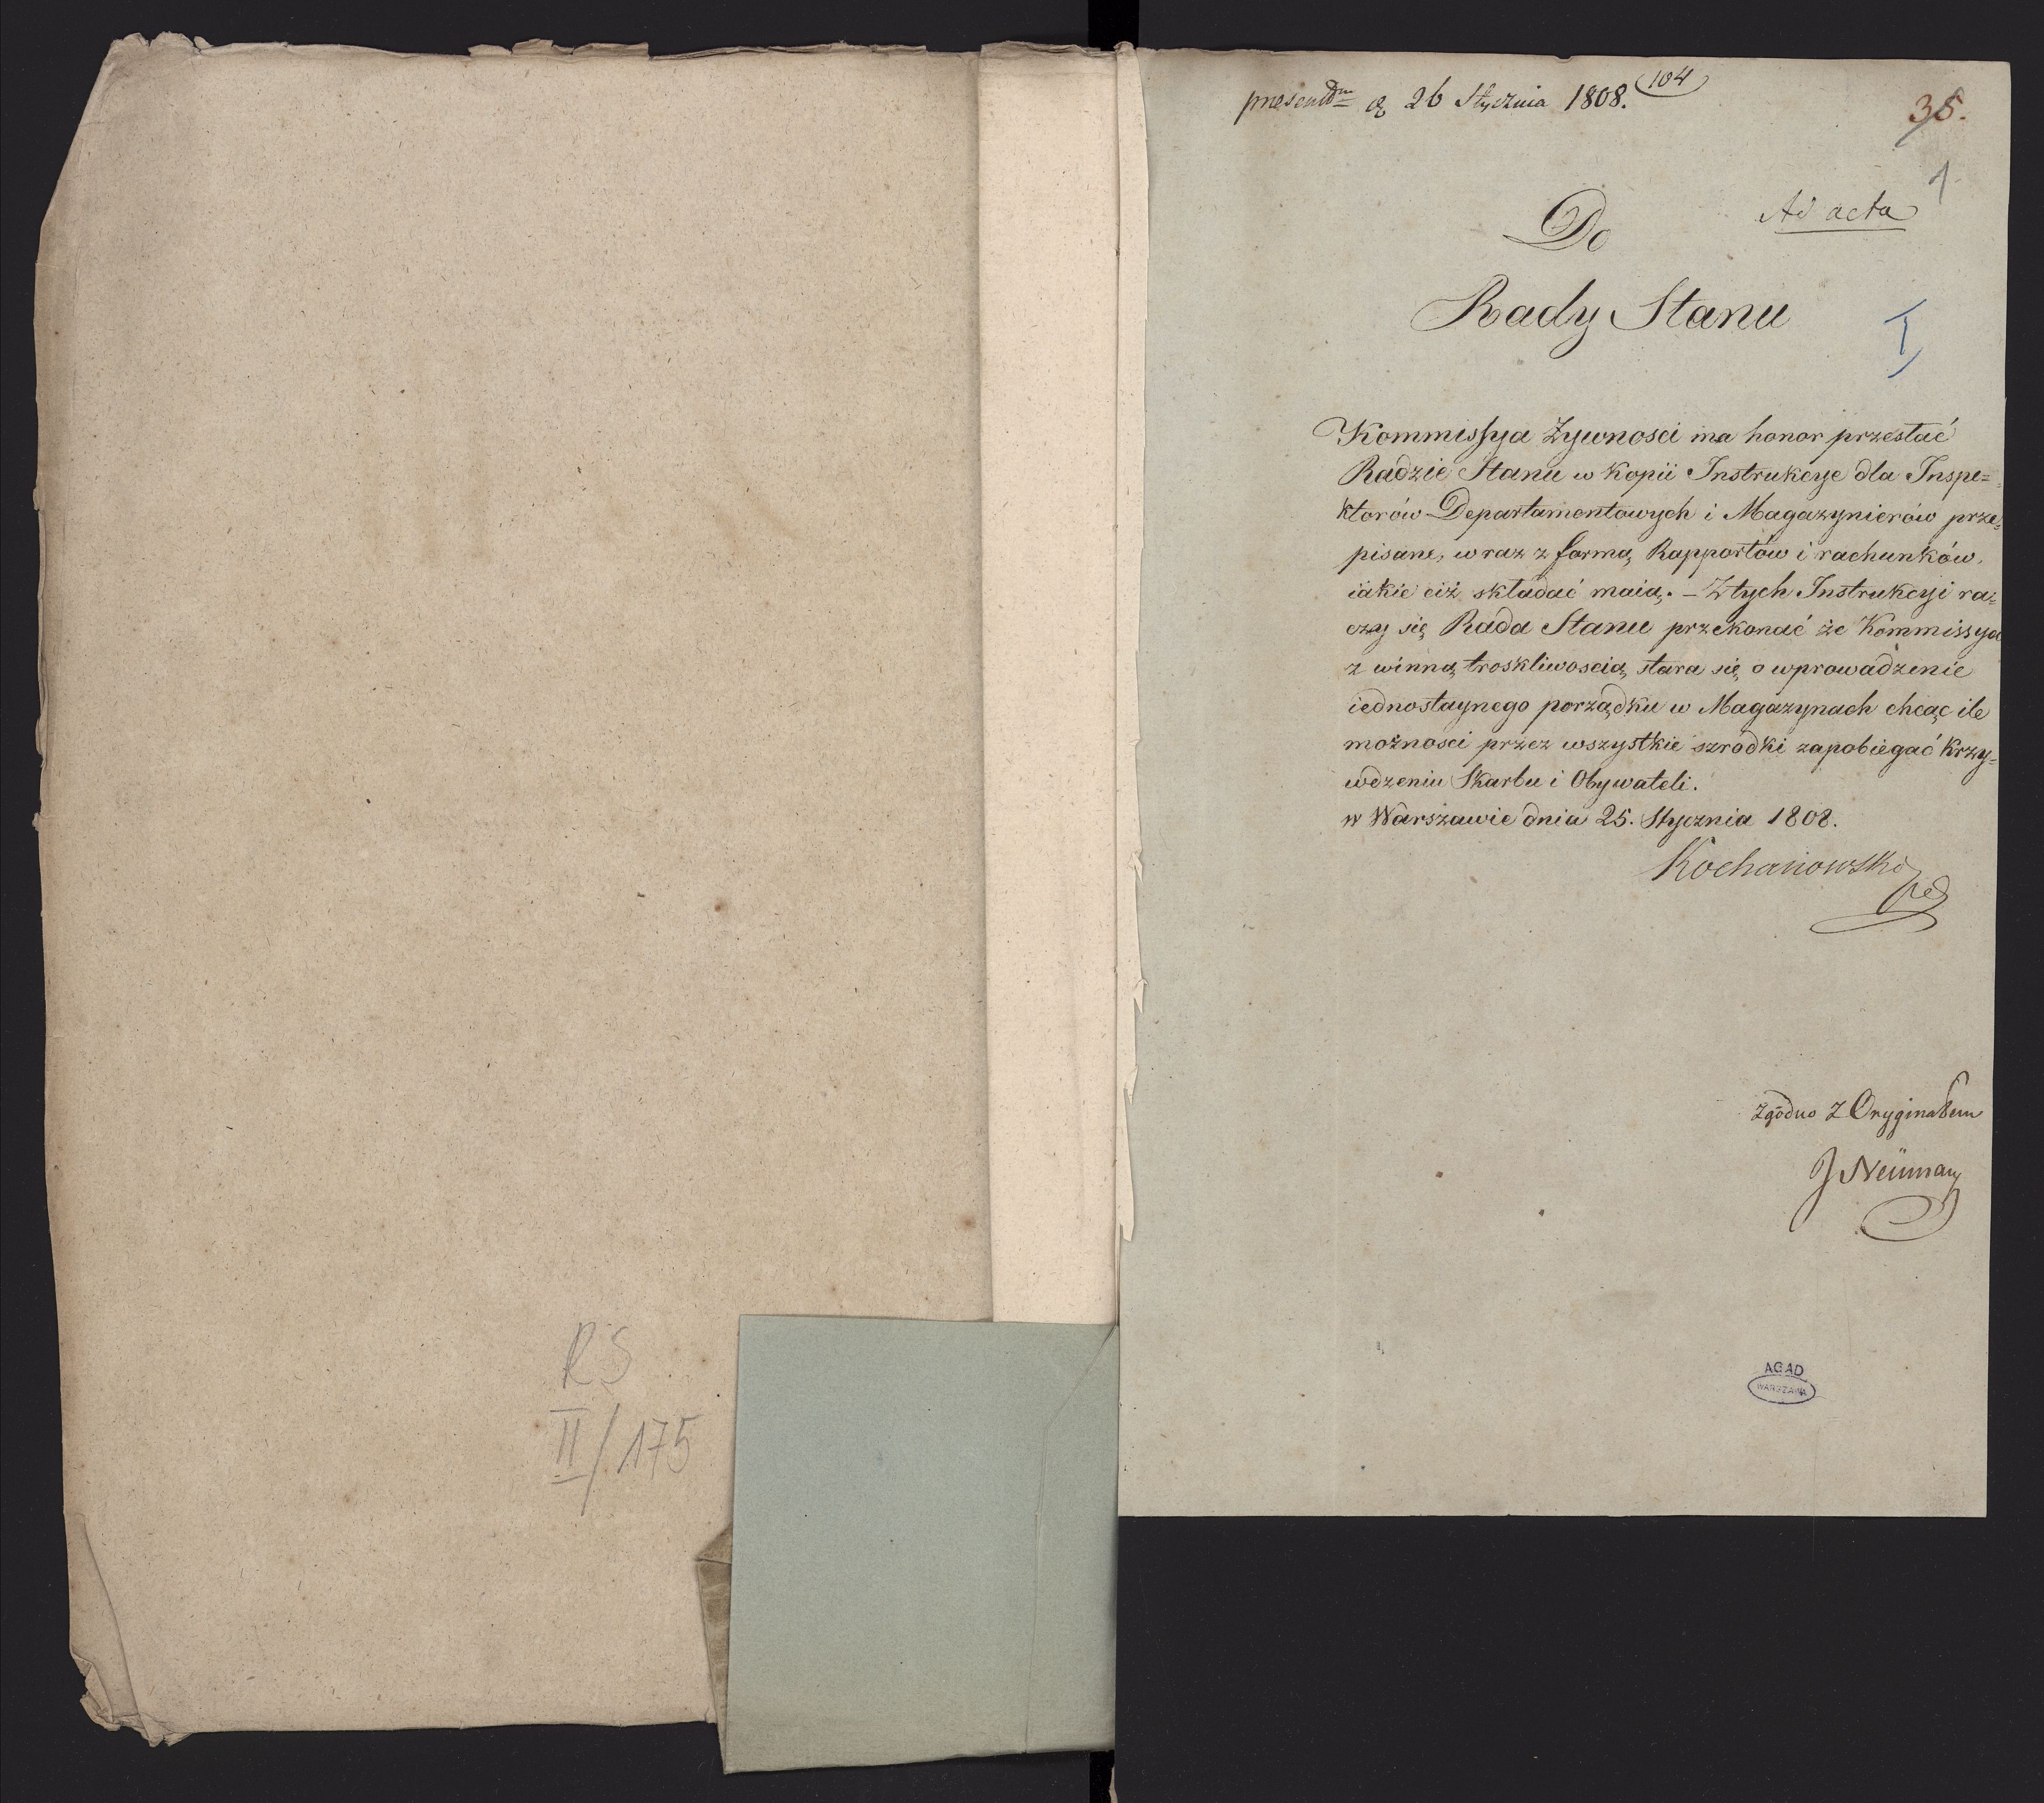 RS
II/175
presentdm d 26 Stycznia 1808. 104
35.
1
Ad acta
Do
Rady Stanu
I
Kommissya Żywnosci ma honor przesłać
Radzie Stanu w Kopii Instrukcye dla Inspe=
ktorów Departamentowych i Magazynierów prze=
pisane, wraz z formą Rapportów i rachunków,
iakie ciż składać maią. – Z tych Instrukcyi ra=
czy się Rada Stanu przekonać że Kommissya
z winną troskliwoscią stara się o wprowadzenie
iednostaynego porządku w Magazynach chcąc ile
możnosci przez wszystkie szrodki zapobiegać Krzy=
wdzeniu Skarbu i Obywateli.
w Warszawie dnia 25. Stycznia 1808.
Kochanowski
Zgodno z Oryginałem
J Neüman
AGAD
WARSZAWA